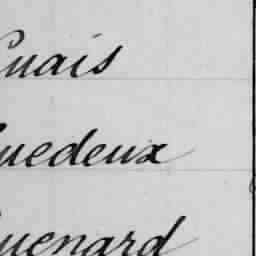 Guais
Guedeux
Guenard